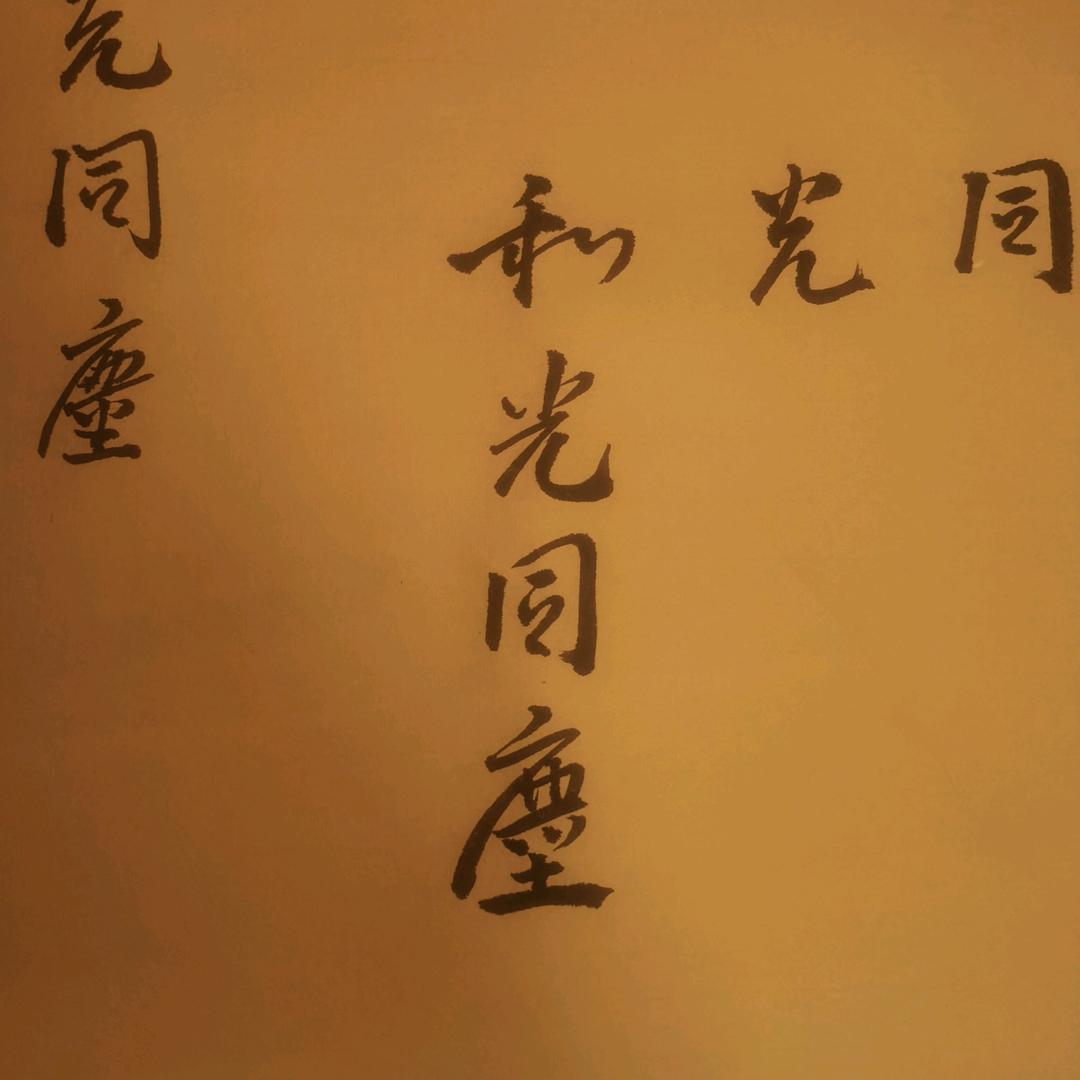 同
光
和光同塵
光同塵